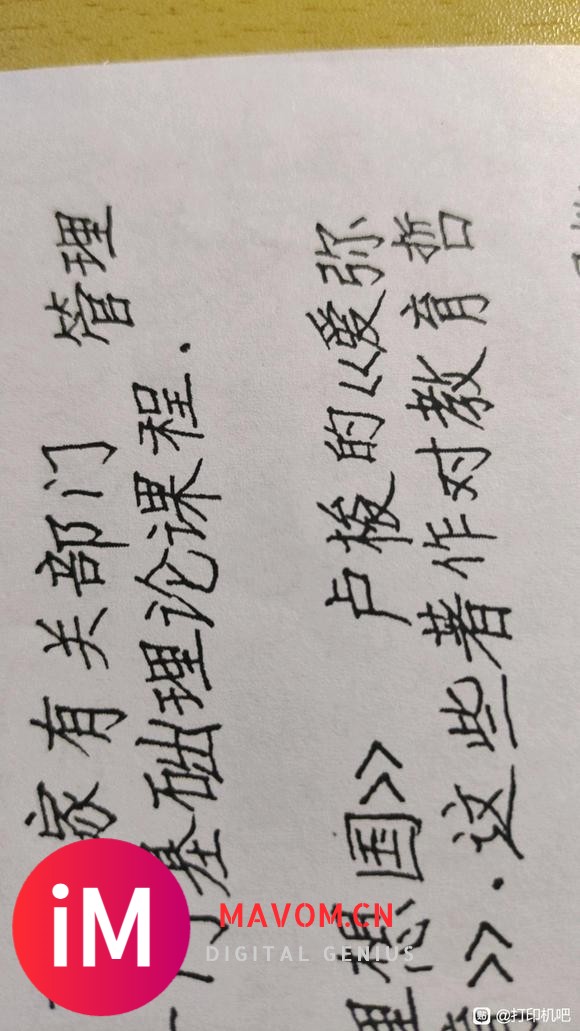 家有关部门 管理
门基础理论课程.
理想国>> 卢梭的<<爱弥
>>.这些著作对教育哲
iM
MAVOM.CN
DIGITAL GENIUS
贴 @打印机吧